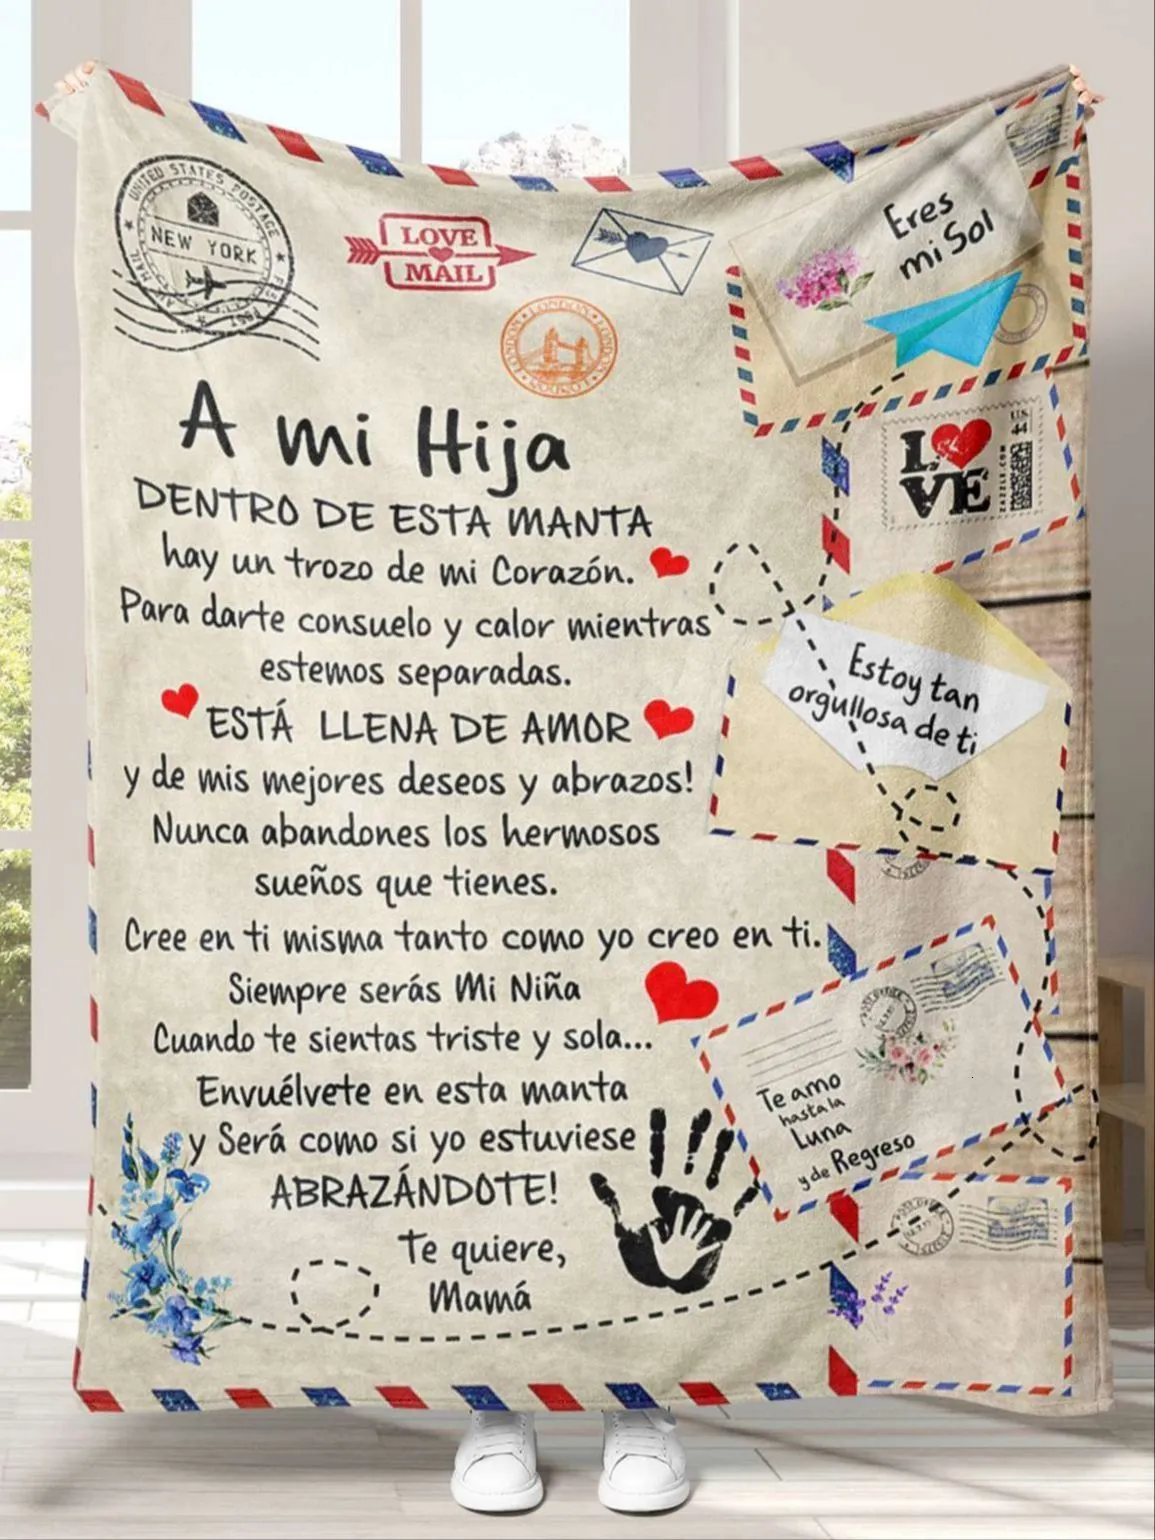 UNITED STATES POSTAGE
NEW YORK
AIR MAIL
LOVE
MAIL
LONDON · LONDON · LONDON · LONDON
Eres
mi Sol
A mi Hija
DENTRO DE ESTA MANTA
hay un trozo de mi Corazón.
Para darte consuelo y calor mientras
estemos separadas.
ESTÁ LLENA DE AMOR
y de mis mejores deseos y abrazos!
Nunca abandones los hermosos
sueños que tienes.
Cree en ti misma tanto como yo creo en ti.
Siempre serás Mi Niña
Cuando te sientas triste y sola...
Envuélvete en esta manta
y Será como si yo estuviese
ABRAZÁNDOTE!
Te quiere,
Mamá
L VE
U.S.
44
ZAZZLE.COM
Estoy tan
orgullosa de ti
Te amo
hasta la
Luna
y de Regreso